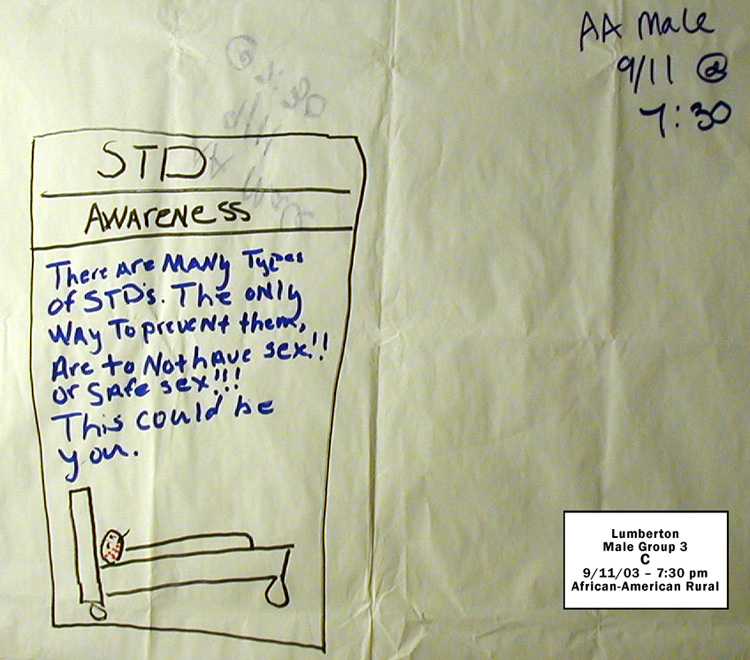 AA Male
9/11 @
7:30
STD
AWAReNeSS
There ARe MANy Types
of STD's. The ONly
WAy To prevent them,
Are to Not have sex!!
or Safe sex!!!
This could be
you.
Lumberton
Male Group 3
C
9/11/03 – 7:30 pm
African-American Rural